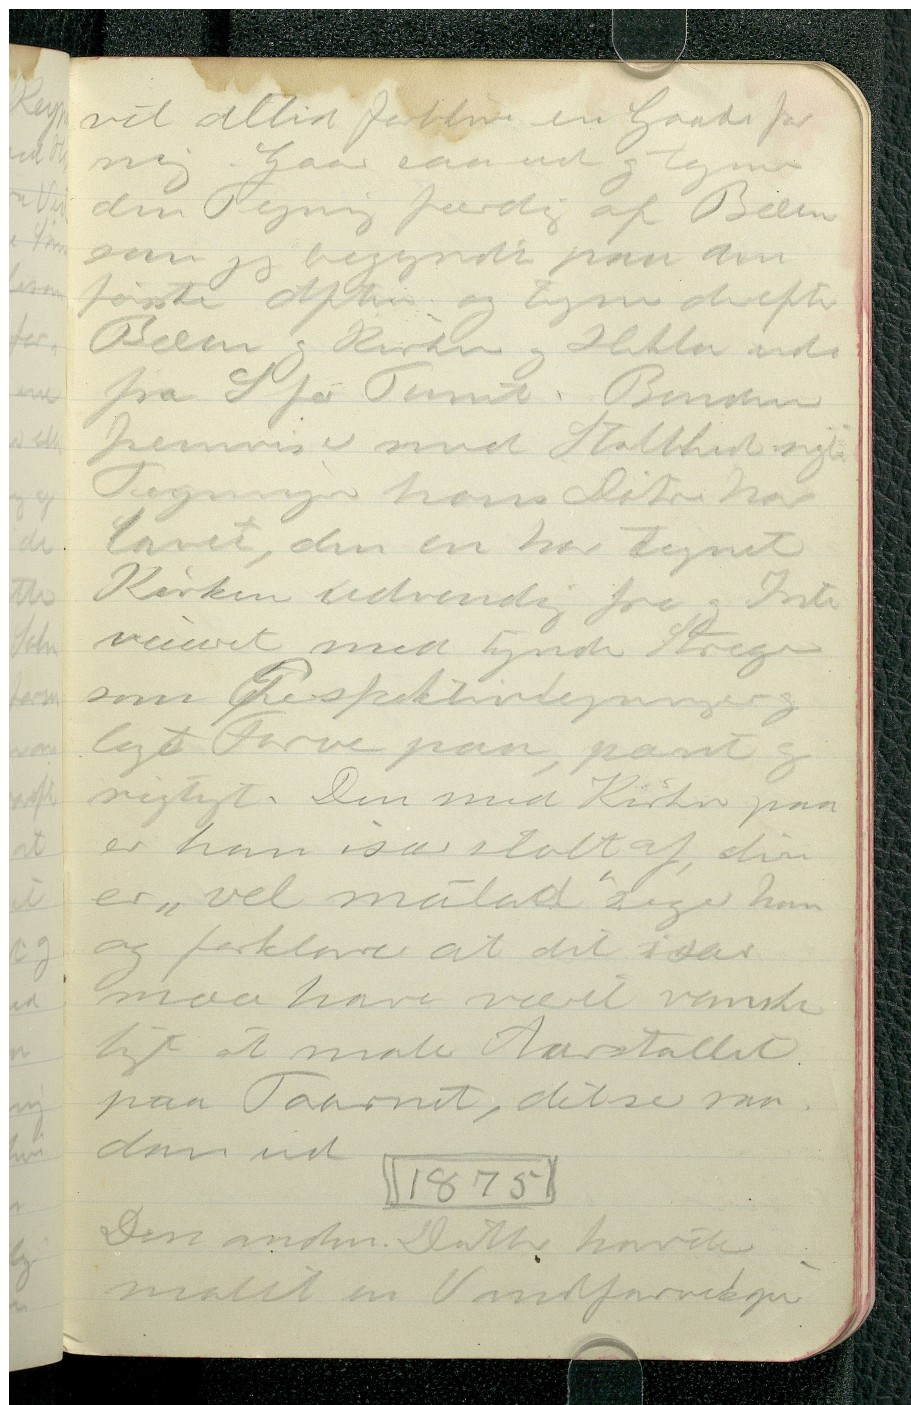 vil altid forblive en Gaade for
mig. Gaar saa ud og tegner
den Tegning færdig af Bæen
som jeg begyndte paa den
første Aften og tegner derefter
Bæen og Kirken og Hekla ude
fra Tunet. Bonden
fremviser med Stolthed nogle
Tegninger hans Døtre har
lavet, den en har tegnet
Kirken udvendig fra og Inte
riøret med tynde Streger
som Perspektivtegninger og
lagt Farve paa, pænt og
rigtigt. Den med Kirken paa
er han især stolt af, den
er „vel málad" siger han
og forklarer at det især
maa have været vanske
ligt at male Aarstallet
paa Taarnet, det se saa
dan ud
1875
Den anden Datter havde
malet en Vandfarvekopi